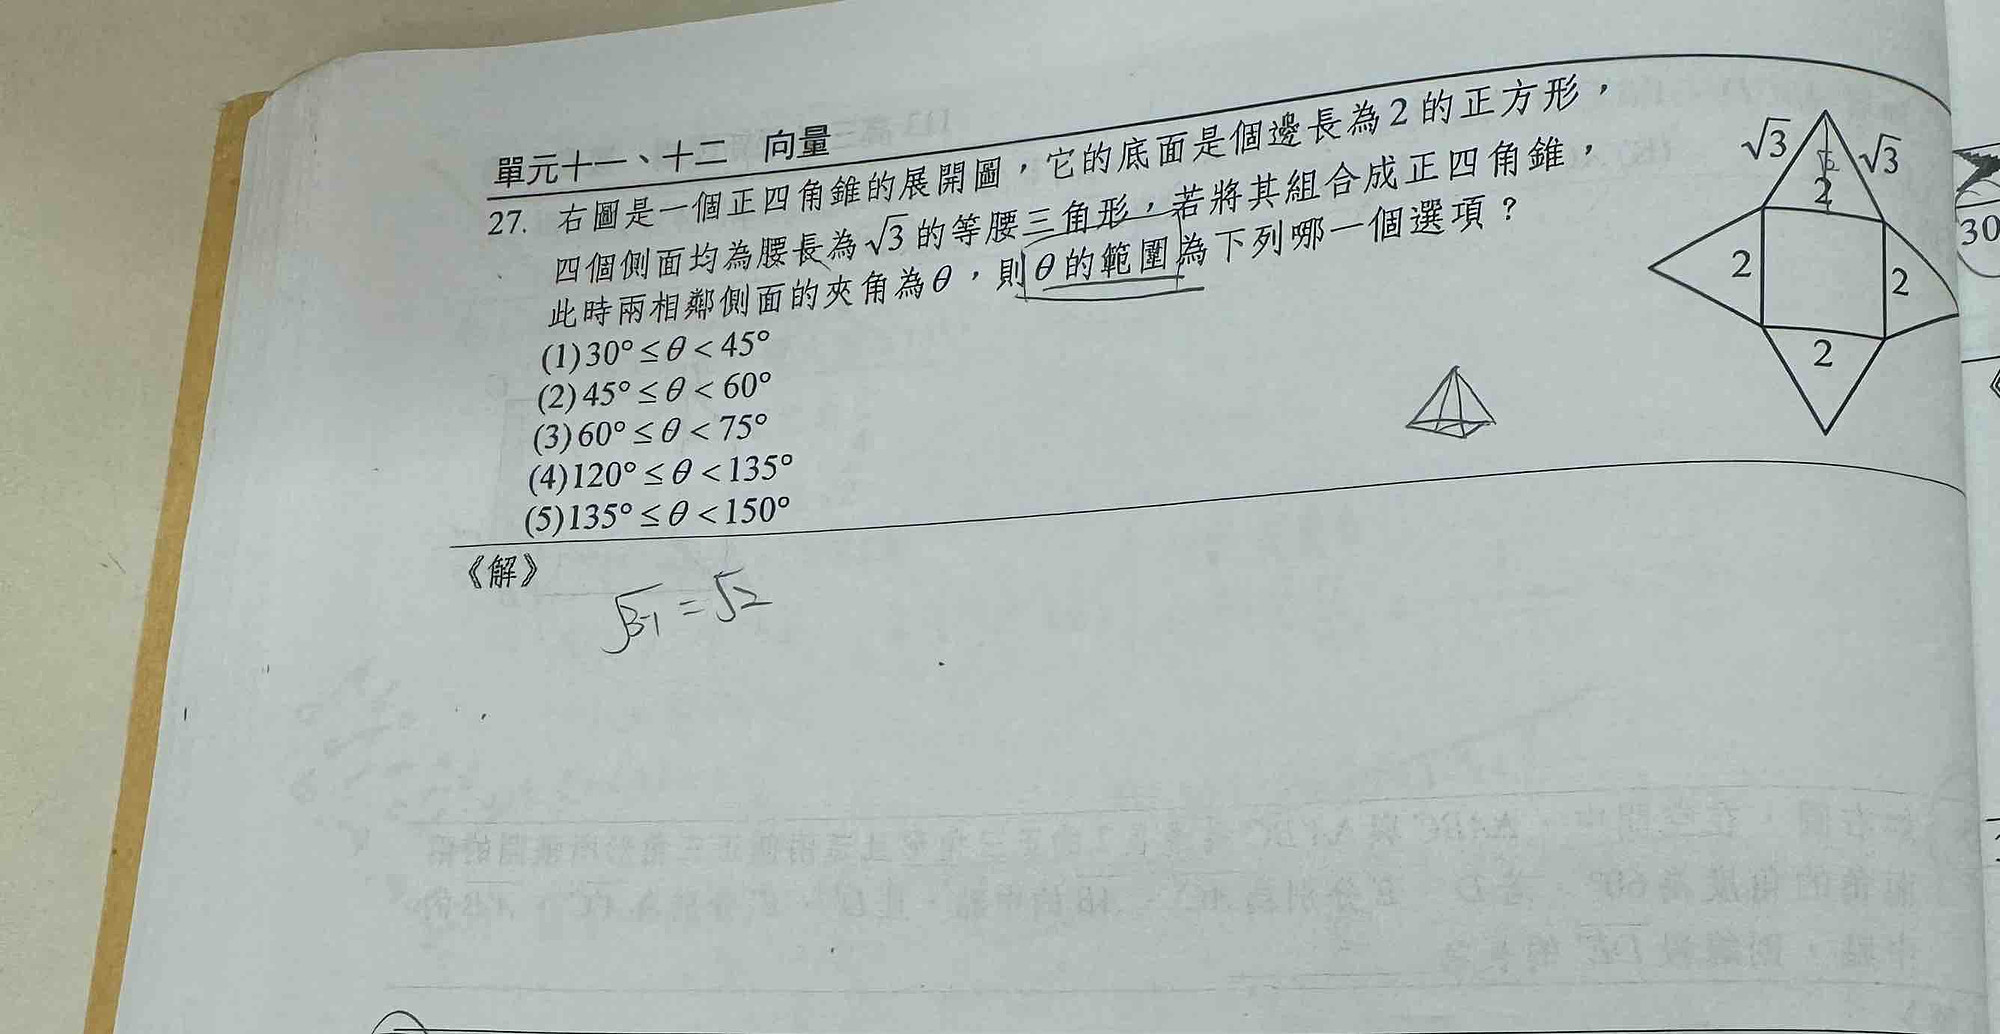 單元十一、十二 向量
27. 右圖是一個正四角錐的展開圖，它的底面是個邊長為2的正方形，
四個側面均為腰長為√3的等腰三角形，若將其組合成正四角錐，
此時兩相鄰側面的夾角為θ，則θ的範圍為下列哪一個選項？
(1)30°≤θ<45°
(2)45°≤θ<60°
(3)60°≤θ<75°
(4)120°≤θ<135°
(5)135°≤θ<150°
√3 √3
2
2 2
2
30
《解》
√3-1 = √2